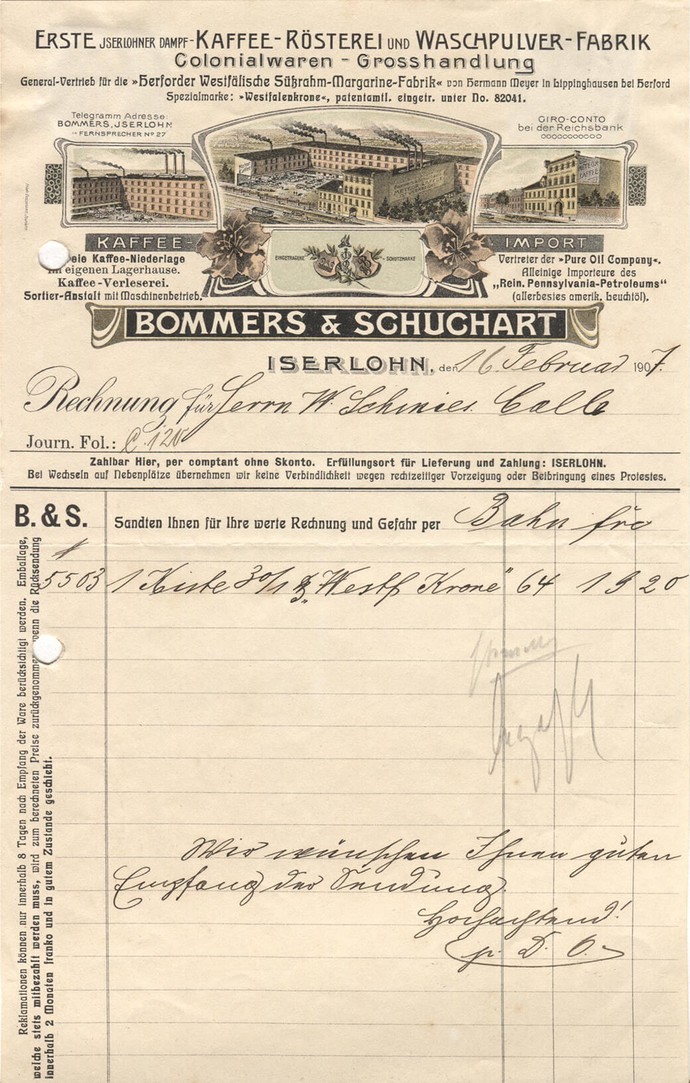 ERSTE JSERLOHNER DAMPF-KAFFEE-RÖSTEREI UND WASCHPULVER-FABRIK
Colonialwaren - Grosshandlung
General-Vertrieb für die »Herforder Westfälische Süßrahm-Margarine-Fabrik« von Hermann Meyer in Lippinghausen bei Herford
Spezialmarke: »Westfalenkrone«, patentamtl. eingetr. unter No. 82041.
Telegramm Adresse:
BOMMERS, JSERLOHN
FERNSPRECHER No 27
GIRO-CONTO
bei der Reichsbank
KAFFEE-
IMPORT
EINGETRAGENE SCHUTZMARKE
Kaffee-Niederlage
im eigenen Lagerhause.
Kaffee-Verleserei.
Sortier-Anstalt mit Maschinenbetrieb.
Vertreter der »Pure Oil Company«.
Alleinige Importeure des
„Rein. Pennsylvania-Petroleums"
(allerbestes amerik. Leuchtöl).
BOMMERS & SCHUCHART
ISERLOHN, den 16 Februar 1907.
Rechnung für Herrn W. Schmies. Calle
Journ. Fol.: C. 120
Zahlbar Hier, per comptant ohne Skonto. Erfüllungsort für Lieferung und Zahlung: ISERLOHN.
Bei Wechseln auf Nebenplätze übernehmen wir keine Verbindlichkeit wegen rechtzeitiger Vorzeigung oder Beibringung eines Protestes.
B. & S.
Sandten Ihnen für Ihre werte Rechnung und Gefahr per Bahn fro
5503 1 Kiste 30/1 „Westf Krone" 64 19 20
Wir wünschen Ihnen guten
Empfang der Sendung.
Hochachtend!
p. D. O.
Reklamationen können nur innerhalb 8 Tagen nach Empfang der Ware berücksichtigt werden. Emballage,
welche stets mitbezahlt werden muss, wird zum berechneten Preise zurückgenommen, wenn die Rücksendung
innerhalb 2 Monaten franko und in gutem Zustande geschieht.